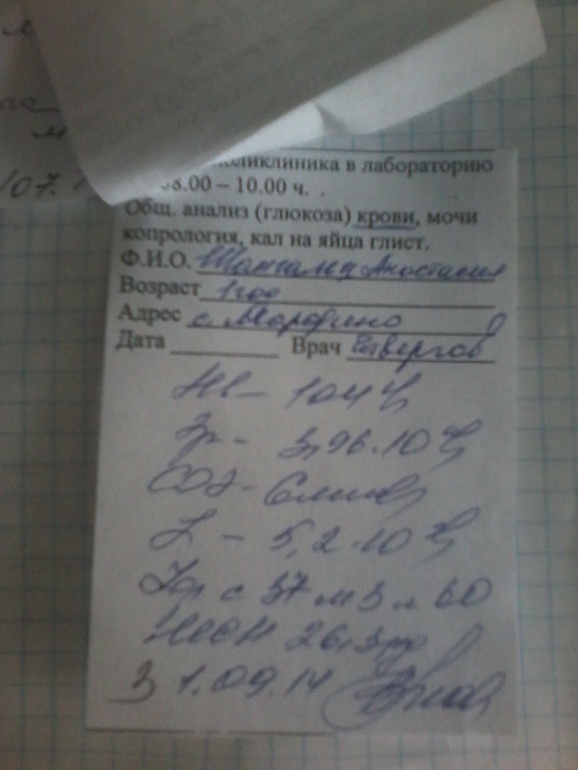 поликлиника в лабораторию
8.00 – 10.00 ч.
Общ. анализ (глюкоза) крови, мочи
копрология, кал на яйца глист.
Ф.И.О. Анастасия
Возраст 1 год
Адрес с. Марфино
Дата Врач Четвергов
Hb – 104 г/л
Эр – 3,96·10 /л
СОЭ – 6 мм/ч
L – 5,2·10 /л
с 37 м 3 л 60
1.09.14